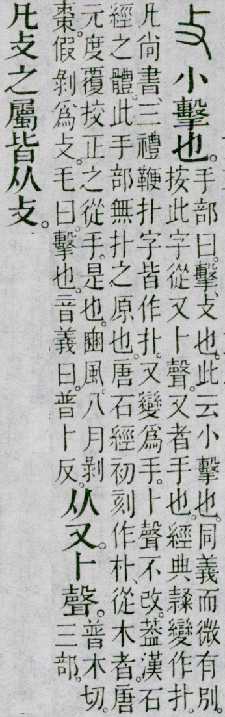 攴 小擊也。
手部曰。擊、攴也。此云小擊也。同義而微有別。
按此字從又卜聲。又者手也。經典隸變作扑。
凡尚書、三禮鞭扑字皆作扑。又變爲手。卜聲不改。葢漢石
經之體。此手部無扑之原也。唐石經初刻作朴、從木者。唐
元度覆挍正之從手。是也。豳風。八月剝
棗。假剝爲攴。毛曰。擊也。音義曰。普卜反。
从又。卜聲。
普木切。
三部。
凡攴之屬皆从攴。